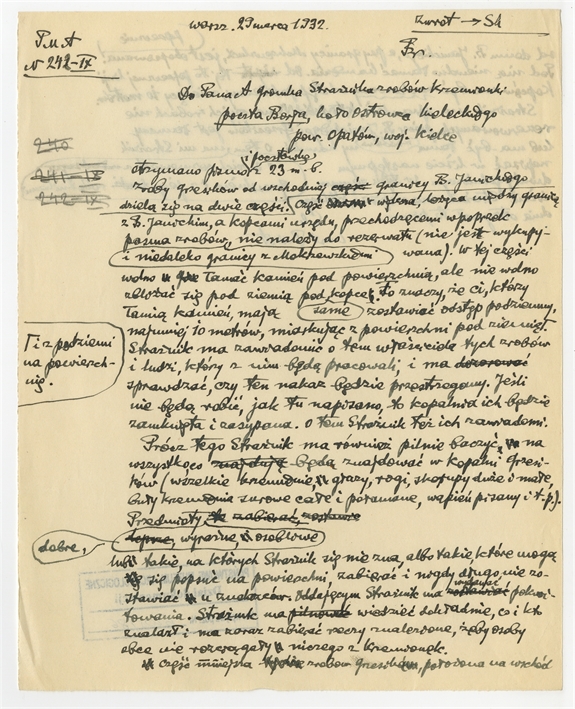 Warsz. 29 marca 1932.
Zwrot → Sk
P.M.A
N 242-IX
Do Pana A Gromka Strażnika zrobów Krzemionki
poczta Borja, koło Ostrowca Kieleckiego
pow. Opatów, woj. Kielce
240
241-IX
242-IX
i pocztówkę
Otrzymano pismo z 23 m. b.
Zroby Gresików od wschodniej część granicy B. Janickiego
dzielą się na dwie części. Część leżąca między granicą
z B. Janickim, a kopcami urzędu, przechodzącemi wpoprzek
pasma zrobów, nie należy do rezerwatu (nie jest wykupy-
i niedaleko granicy z Mokrzewskimi wana). W tej części
wolno łamać kamień pod powierzchnią, ale nie wolno
zbliżać się pod ziemią pod kopce, to znaczy, że ci, którzy
łamią kamień, mają same zostawiać odstęp podziemny,
najmniej 10 metrów, miarkując z powierzchni pod ziemię
i z podziemi
na powierzch-
nię.
Strażnik ma zawiadomić o tem właściciela tych zrobów
i ludzi, którzy z nim będą pracowali, i ma dozorować
sprawdzać, czy ten nakaz będzie przestrzegany. Jeśli
nie będą robić, jak tu napisano, to kopalnia ich będzie
zamknięta i zasypana. O tem Strażnik też ich zawiadomi.
Prócz tego Strażnik ma również pilnie baczyć, na
wszystko co znajdują będą znajdować w kopalni Gresi-
ków (wszelkie krzemienie, głazy, rogi, skorupy duże i małe,
buły krzemienia surowe całe i połamane, wapień pisany i t. p.).
Przedmioty te zabierać, zostawie
dobre, wyraźne osobliwe
lub takie, na których Strażnik się nie zna, albo takie, które mogą
się popsuć na powierzchni, zabierać i nigdy długo nie zo-
stawiać u znalazców. Oddającym Strażnik ma wydawać pokwi-
towania. Strażnik ma pilnować wiedzieć dokładnie, co i kto
znalazł i ma zaraz zabierać rzeczy znalezione, żeby osoby
obce nie rozciągały niczego z Krzemionek.
Część mniejsza zrobów Gresików, położona na wschód